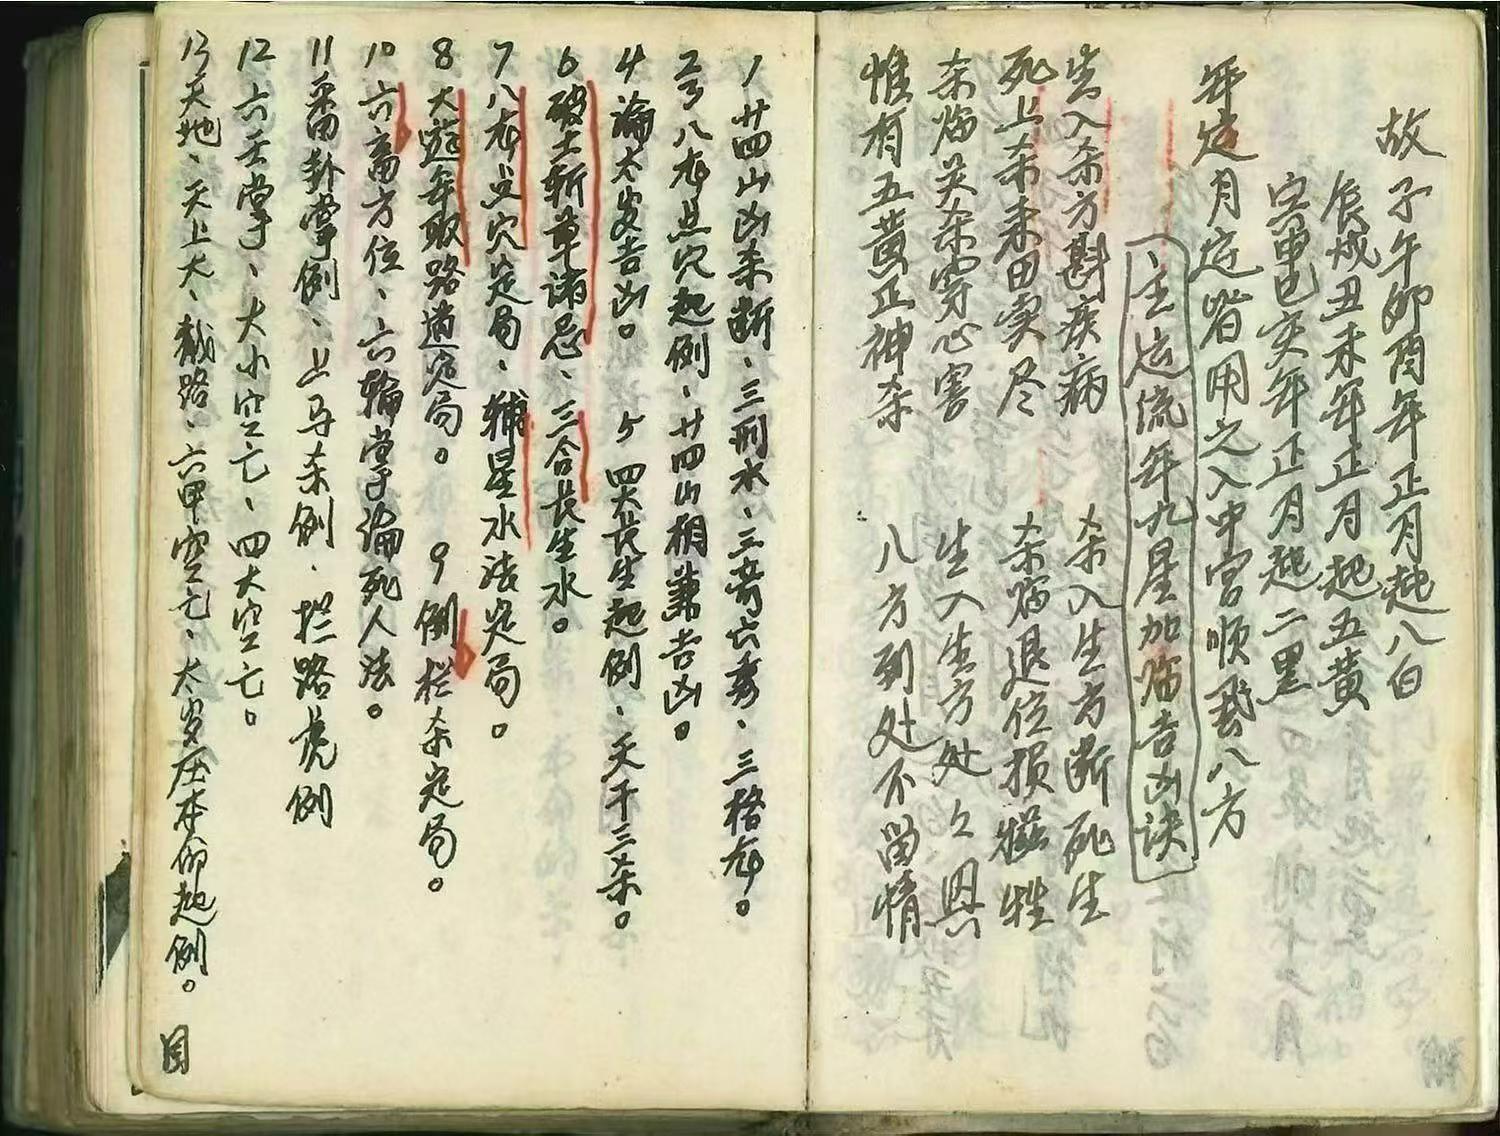 故子午卯酉年正月起八白
辰戌丑未年正月起五黄
寅申巳亥年正月起二黑
年定月定皆用之入中宫顺飛八方
主运流年九星加临吉凶诀
生入杀方斟疾病 杀入生方断死生
死上杀来田卖尽 杀临退位损牺牲
杀临关杀穿心害 生入生方处々恩
惟有五黄正神杀 八方到处不留情
1 廿四山凶杀断、三刑水、三奇六秀、三格龙。
2 3 八龙点穴起例、廿四山朝萧吉凶。
4 論太岁吉凶。 5 四大長生起例、天干三杀。
6 破土斩草諸忌、三合長生水。
7 八龙点穴定局、辅星水法定局。
8 大遊年取路道定局。 9 倒栏杀定局。
10 六畜方位、六輪掌論死人法。
11 番卦掌例、上马杀例、拦路虎例
12 六壬掌、大小空亡、四大空亡。
13 天地、天上大、截路、六甲空亡、太岁压本命起例。
目